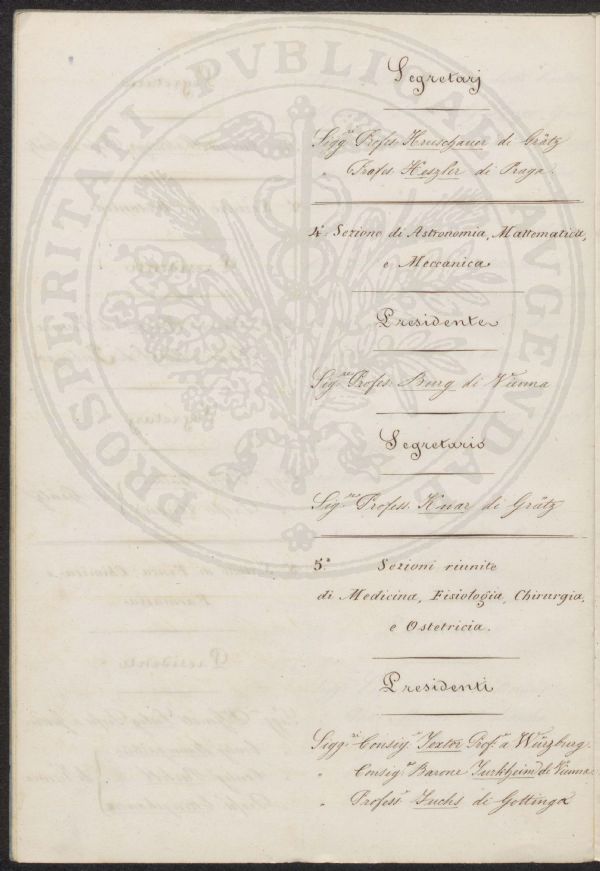 Segretarj
Sigg.ri Profess. Hruschauer di Grätz
" Profess. Heszler di Praga.
4.a Sezione di Astronomia, Mattematica,
e Meccanica
Presidente
Sig.re Profess. Burg di Vienna
Segretario
Sig.re Profess. Knar di Grätz
5.a Sezioni riunite
di Medicina, Fisiologia, Chirurgia,
e Ostetricia.
Presidenti
Sigg.ri Consig.e Textor Prof.e a Würzburg.
" Consig.e Barone Turkheim di Vienna
" Profess.e Fuchs di Gottinga
PROSPERITATI PVBLICAE AVGENDAE